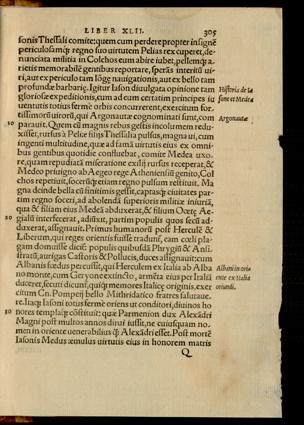 LIBER XLII.
305
sonis Thessali comite: quem cum perdere propter insignē
periculosamq́; regno suo uirtutem Pelias rex cuperet, de-
nunciata militia in Colchos eum abire iubet, pellemq́; a-
rietis memorabilē gentibus reportare, sperās interitū ui-
ri, aut ex periculo tam lōgæ nauigationis, aut ex bello tam
profundæ barbarię. Igitur Iason diuulgata opinione tam
gloriosæ expeditionis, cum ad eum certatim principes iu
uentutis totius fermè orbis concurrerent, exercitum for-
tissimorū uirorū, qui Argonautæ cognominati sunt, com
parauit. Quem cū magnis rebus gestis incolumem redu-
xisset, rursus à Peliæ filijs Thessalia pulsus, magna ui, cum
ingenti multitudine, quæ ad famā uirtutis eius ex omni-
bus gentibus quotidie confluebat, comite Medea uxo-
re, quam repudiatā miseratione exilij rursus receperat, &
Medeo priuigno ab Aegeo rege Atheniensiū genito, Col
chos repetiuit, socerūq́; etiam regno pulsum restituit. Ma
gna deinde bella cū finitimis gessit, captasq́; ciuitates par-
tim regno soceri, ad abolendā superioris militiæ iniuriā,
qua & filiam eius Medeā abduxerat, & filium Oetę Ae-
gialū interfecerat, adiūxit, partim populis quos secū ad-
duxerat, assignauit. Primus humanorū post Herculē &
Liberum, qui reges orientis fuisse tradunt, eam cœli pla-
gam domuisse dicit̄: populis quibusdā Phrygiū & Ansi-
stratū, aurigas Castoris & Pollucis, duces assignauit: cum
Albanis fœdus percussit, qui Herculem ex Italia ab Alba
no monte, cum Geryone extincto, armēta eius per Italiā
duceret, secuti dicunt̄, quiq́; memores Italicę originis, exer
citum Cn. Pompeij bello Mithridatico fratres salutaue-
re. Itaq́; Iasoni totus fermè oriens ut conditori, diuinos ho
nores templaq́; cōstituit: quæ Parmenion dux Alexādri
Magni post multos annos dirui iussit, ne cuiusquam no-
men in oriente uenerabilius q̄ Alexādri esset. Post mortē
Iasonis Medeus æmulus uirtutis eius in honorem matris
Q
Historia de Ia
sone et Medea
Argonautæ
Albani in ori-
ente ex Italia
oriundi.
10
20
30